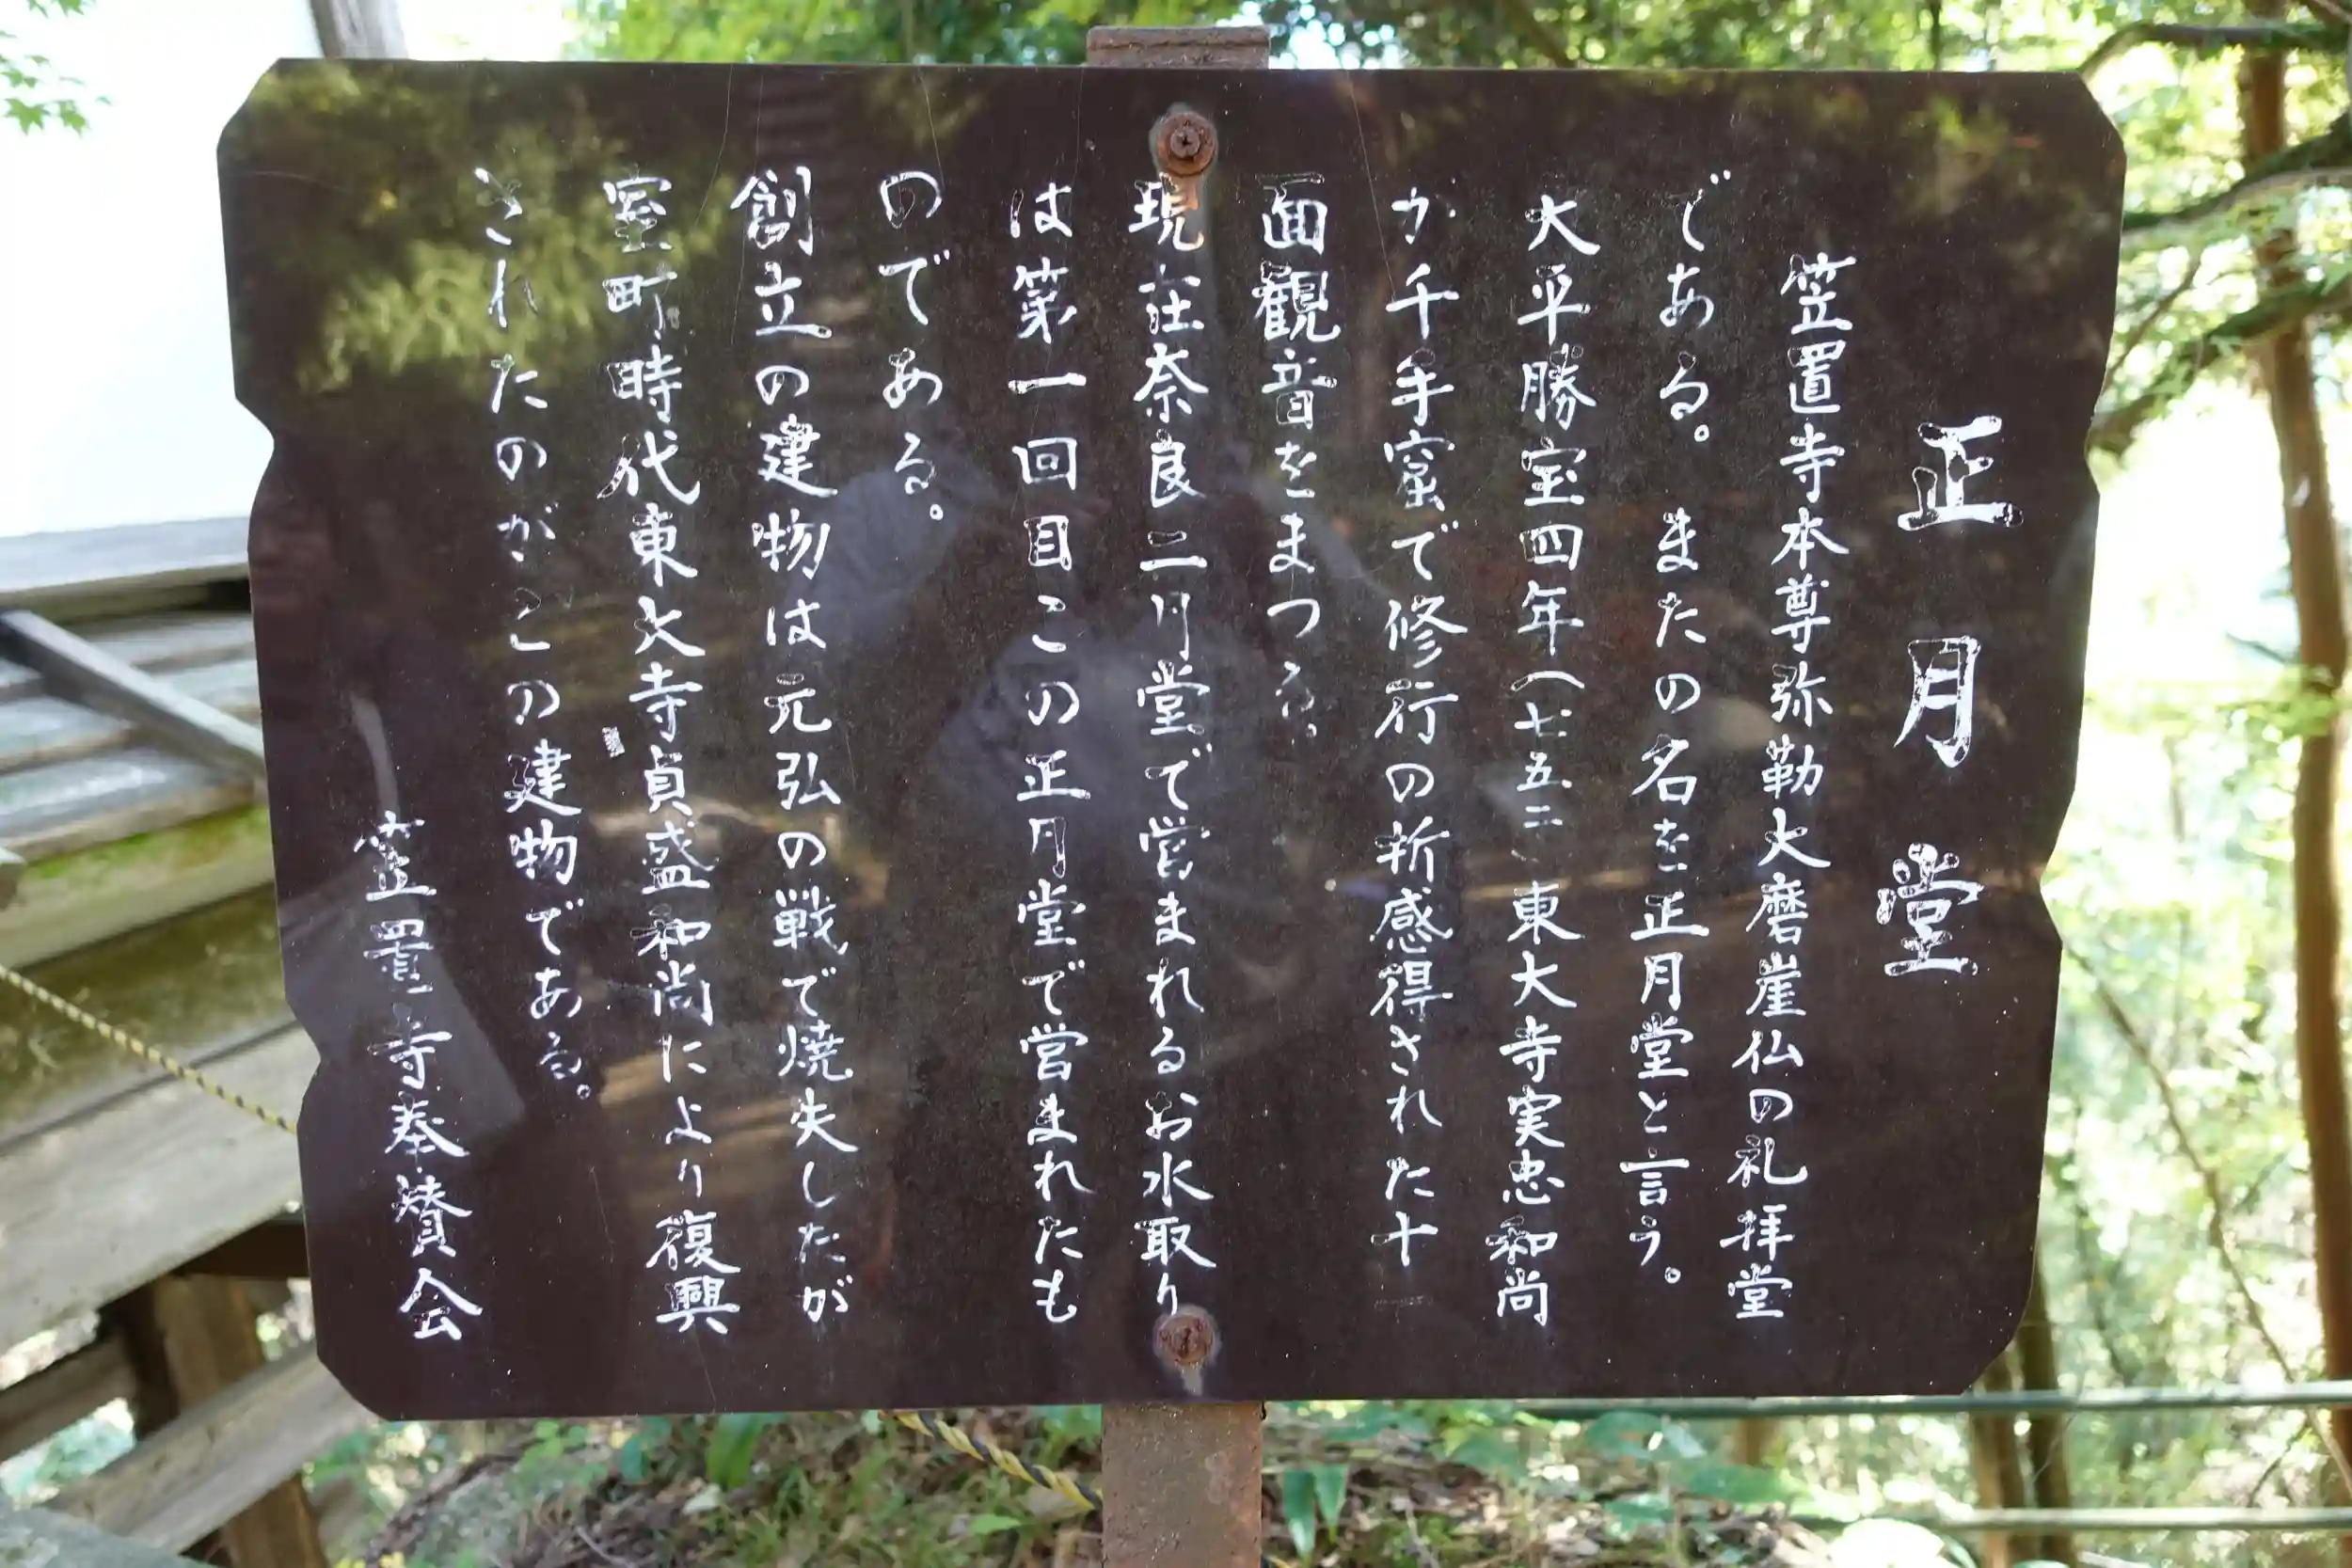 正月堂
笠置寺本尊弥勒大磨崖仏の礼拝堂
である。またの名を正月堂と言う。
大平勝宝四年(七五二、東大寺実忠和尚
が千手窟で修行の折感得された十一
面観音をまつる。
現在奈良二月堂で営まれるお水取り
は第一回目この正月堂で営まれたも
のである。
創立の建物は元弘の戦で焼失したが
室町時代東大寺貞盛和尚により復興
されたのがこの建物である。
笠置寺奉賛会